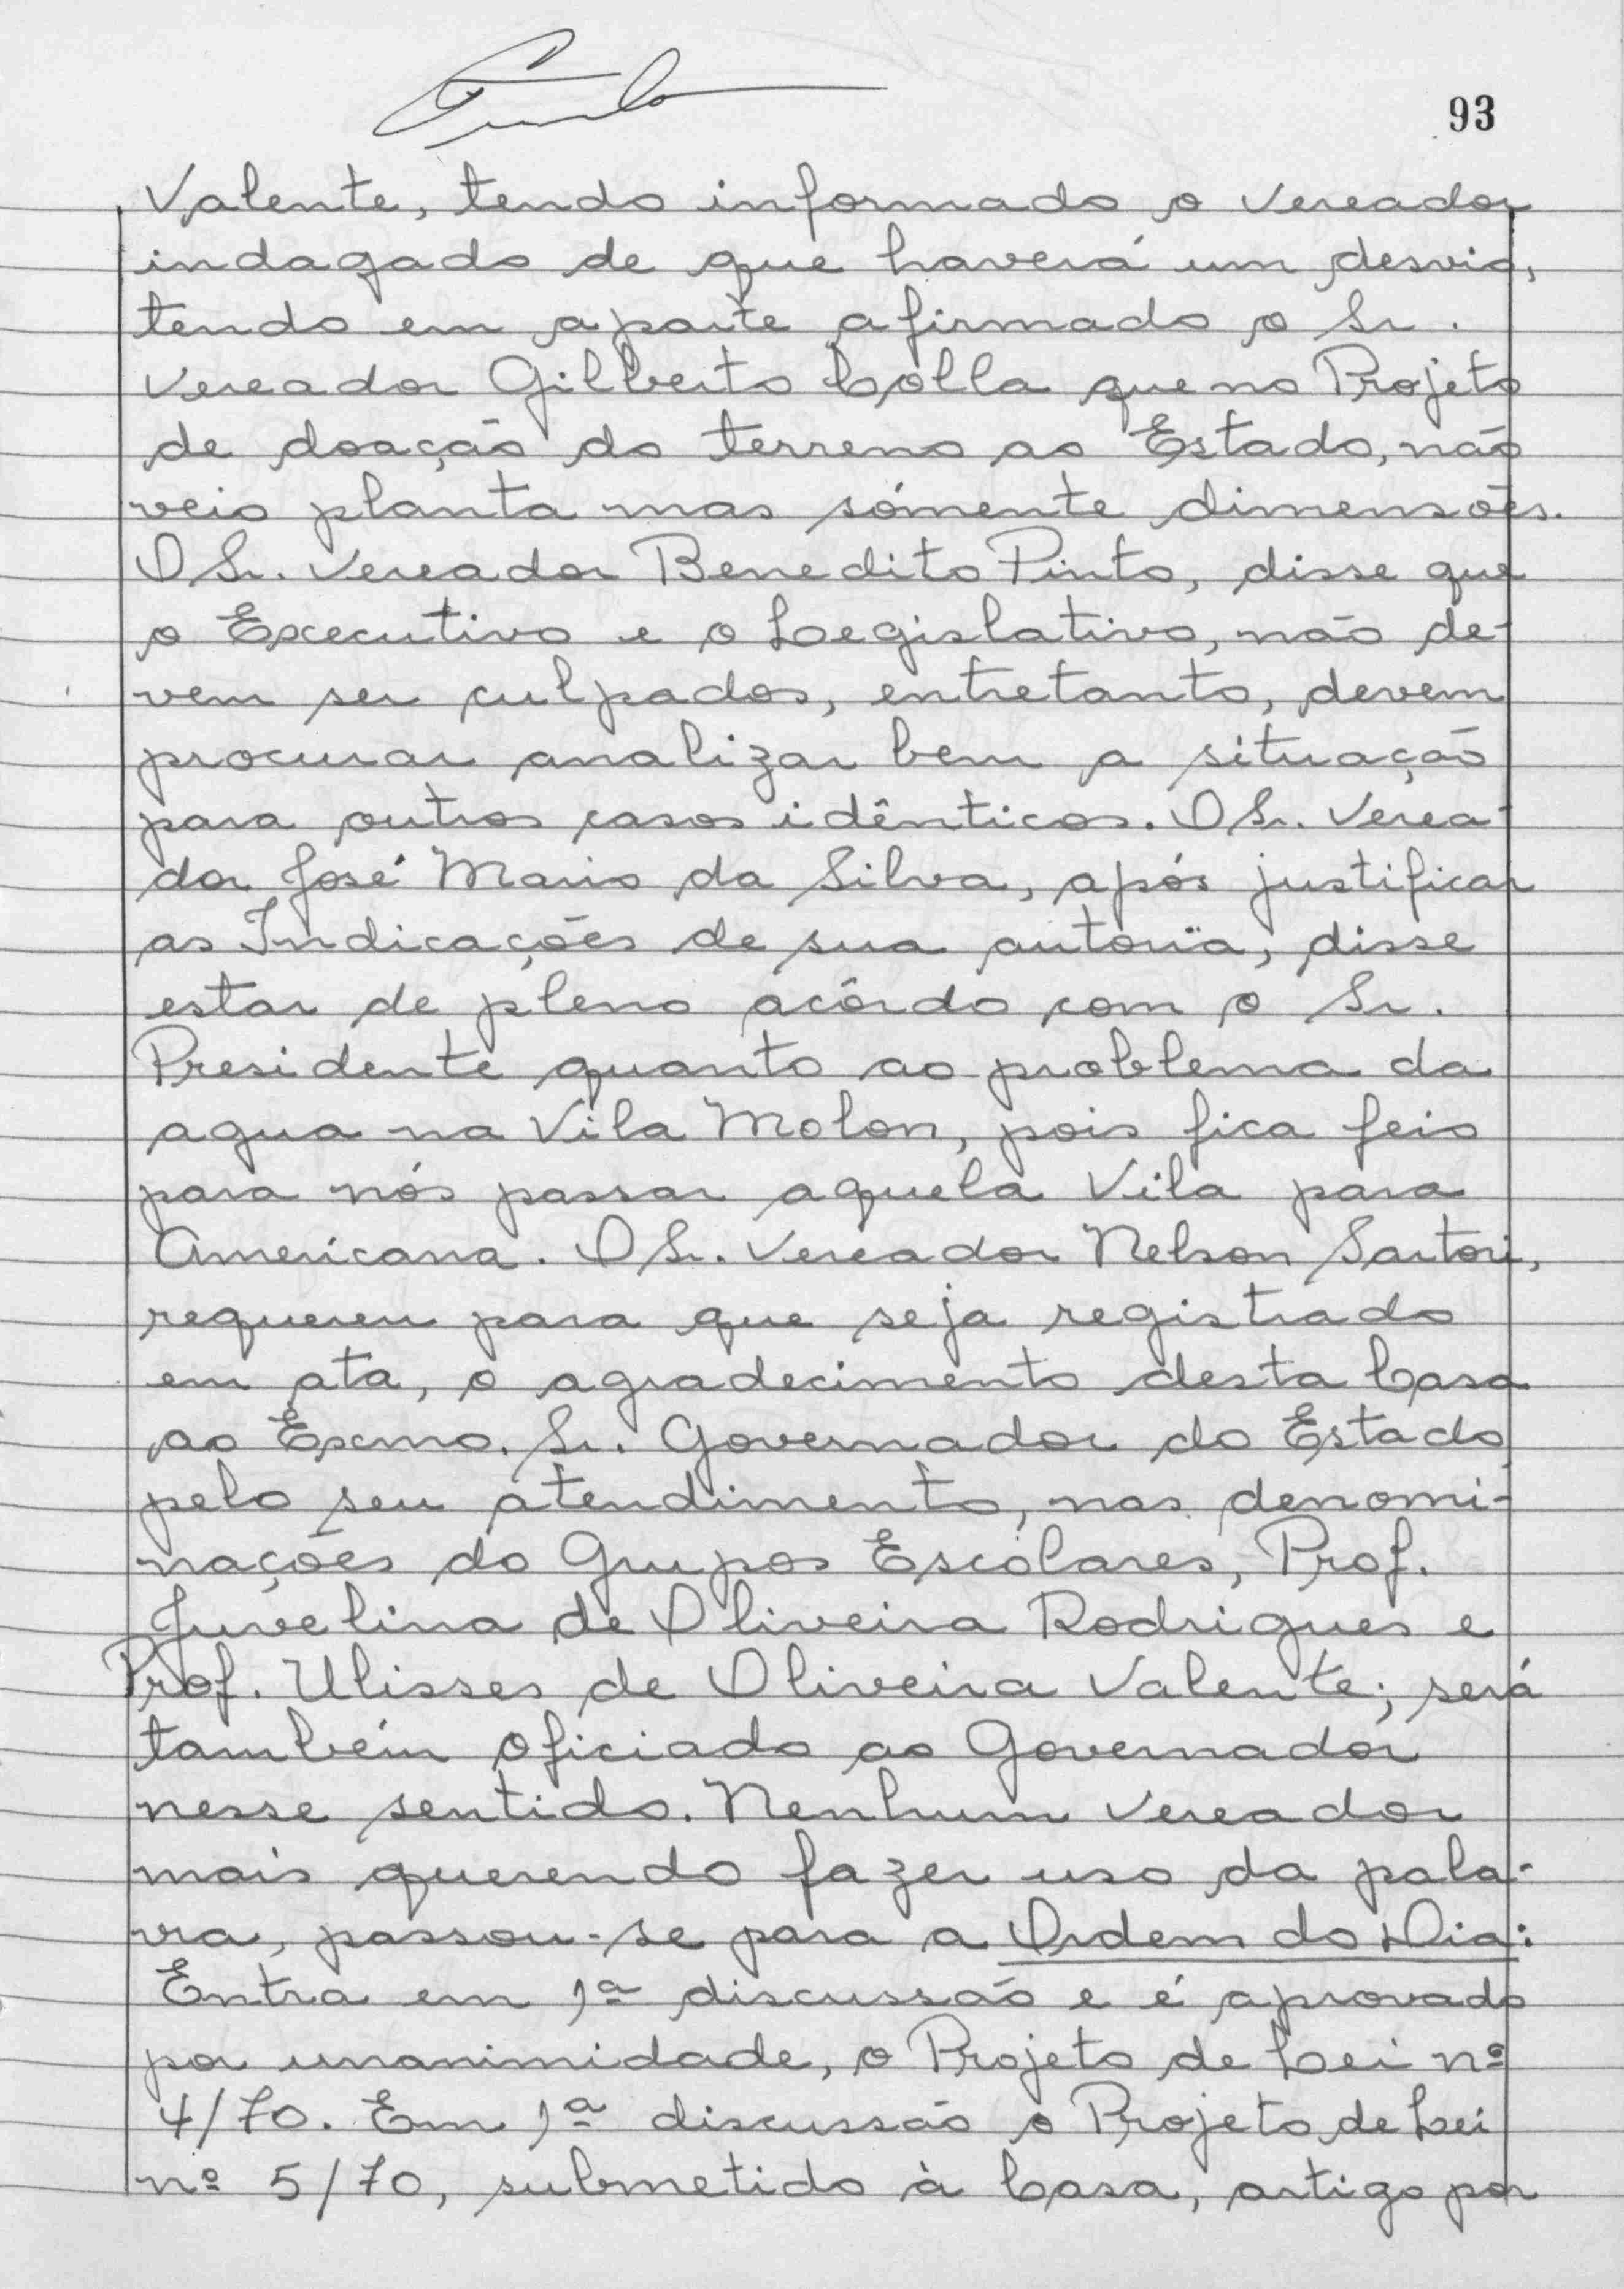 93
Valente, tendo informado o Vereador
indagado de que haverá um desvio,
tendo em aparte afirmado o Sr.
Vereador Gilberto Colla que no Projeto
de doação do terreno ao Estado, não
veio planta mas sómente dimensões.
O Sr. Vereador Benedito Pinto, disse que
o Executivo e o Legislativo, não de-
vem ser culpados, entretanto, devem
procurar analizar bem a situação
para outros casos idênticos. O Sr. Verea-
dor José Mario da Silva, após justificar
as Indicações de sua autoria, disse
estar de pleno acôrdo com o Sr.
Presidente quanto ao problema da
agua na Vila Molon, pois fica feio
para nós passar aquela Vila para
Americana. O Sr. Vereador Nelson Sartori,
requereu para que seja registrado
em ata, o agradecimento desta Casa
ao Exmo. Sr. Governador do Estado
pelo seu atendimento, nas denomi-
nações do Grupos Escolares, Prof.
Juvelina de Oliveira Rodrigues e
Prof. Ulisses de Oliveira Valente; será
também oficiado ao Governador
nesse sentido. Nenhum Vereador
mais querendo fazer uso da pala-
vra, passou-se para a Ordem do Dia:
Entra em 1ª discussão e é aprovado
por unanimidade, o Projeto de Lei nº
4/70. Em 1ª discussão o Projeto de Lei
nº 5/70, submetido à Casa, artigo por